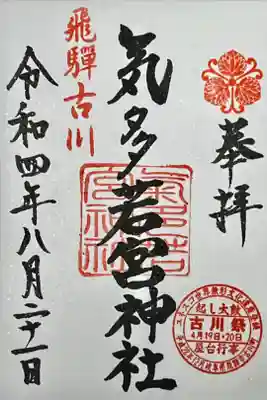 奉拝
気多若宮神社
飛驒古川
令和四年八月二十一日
起し太鼓
古川祭
4月19日・20日
屋台行事